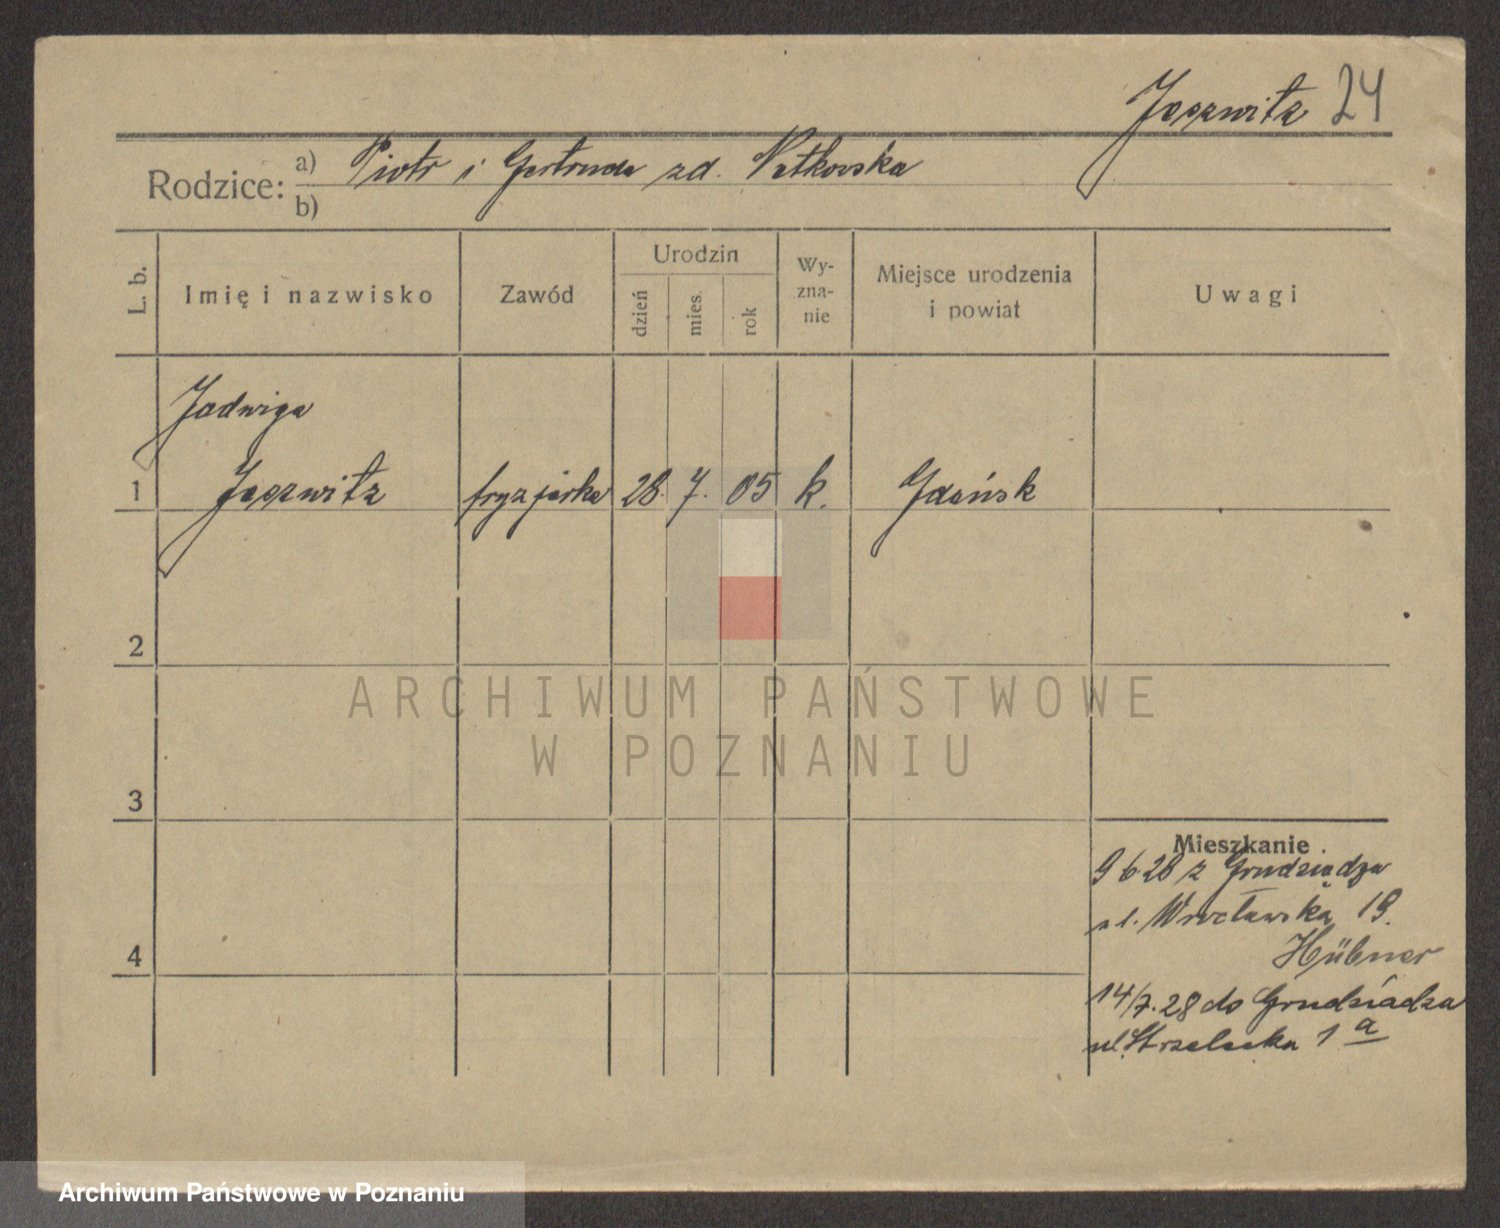 Jeszwitz 24
Rodzice: a) Piotr i Gertruda zd. Netkowska
b)
L. b.
Imię i nazwisko
Zawód
Urodzin
dzień
mies.
rok
Wy-
zna-
nie
Miejsce urodzenia
i powiat
Uwagi
Jadwiga
1 Jeszwitz fryzjerka 28. 7. 05 k. Gdańsk
2
ARCHIWUM PAŃSTWOWE
W POZNANIU
3
Mieszkanie.
9 6 28 z Grudziądza
ul. Wrocławska 19.
Hübner
4
14/7.28 do Grudziądza
ul. Strzelecka 1 a
Archiwum Państwowe w Poznaniu